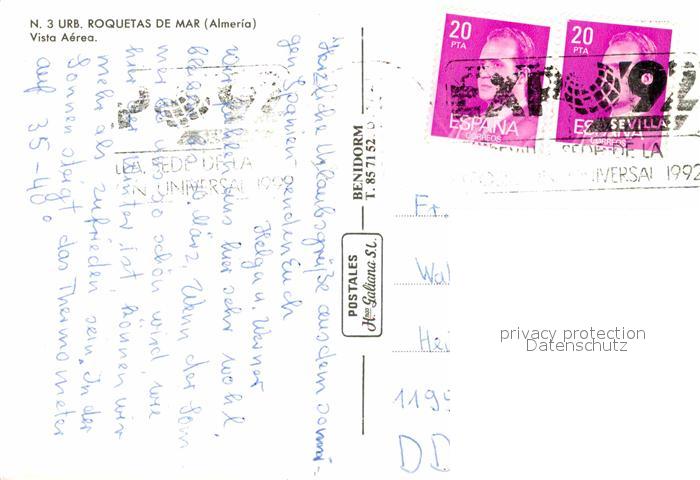 N. 3 URB. ROQUETAS DE MAR (Almería)
Vista Aérea.
Herzliche Urlaubsgrüße aus dem sonni-
gen Spanien senden Euch
Helga u. Werner
Wir fühlen uns hier sehr wohl,
März. Wenn der Som-
so schön wird, wie
hier der Winter ist können wir
mehr als zufrieden sein. In der
Sonne steigt das Thermometer
auf 35-40°
BENIDORM
T. 85 71 52
POSTALES
Hnos Galiana S.L.
20
PTA
ESPAÑA
CORREOS
20
PTA
ESPAÑA
CORREOS
EXPO '92
SEVILLA
SEDE DE LA
UNIVERSAL 1992
SEDE DE LA
UNIVERSAL 1992
Fr.
Wal
Hei
1195
DD
privacy protection
Datenschutz